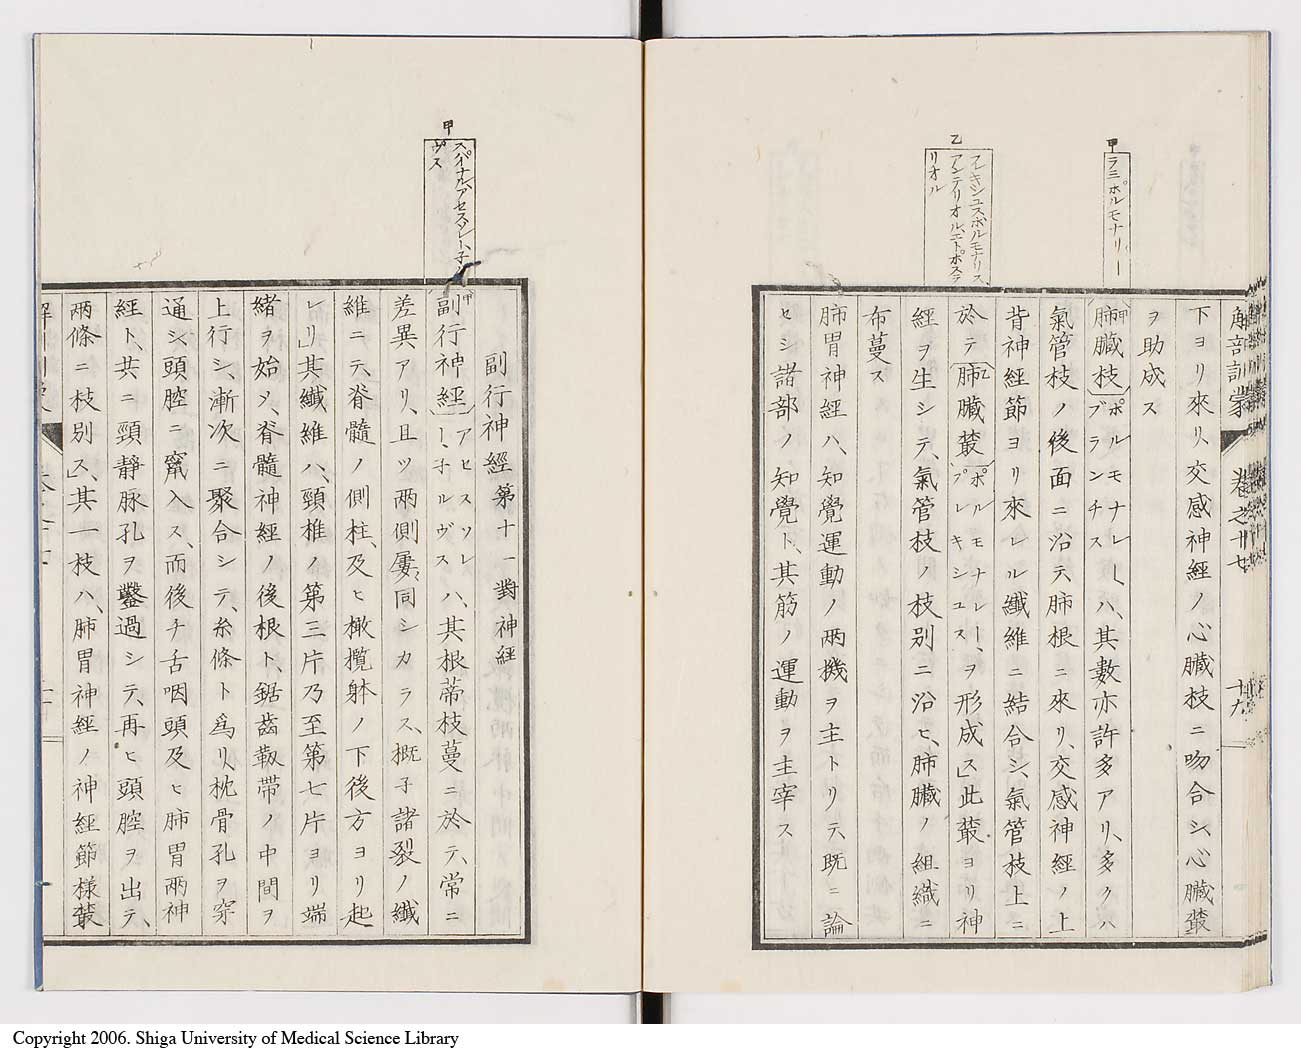 甲
ラミポルモナリー
乙
プレキシュスポルモナリス
アンテリオルエトポステ
リオル
解剖訓蒙 卷之十七 十九
下ヨリ來リ、交感神經ノ心臓枝ニ吻合シ、心臓叢
ヲ助成ス
甲肺臓枝ポルモナレーブランチスハ、其數亦許多アリ、多クハ
氣管枝ノ後面ニ沿テ肺根ニ來リ、交感神經ノ上
背神經節ヨリ來レル纖維ニ結合シ、氣管枝上ニ
於テ乙肺臓叢ポルモナレープレキシュスヲ形成ス」此叢ヨリ神
經ヲ生シテ、氣管枝ノ枝別ニ沿ヒ、肺臓ノ組織ニ
布蔓ス
肺胃神經ハ、知覺運動ノ兩機ヲ主トリテ、既ニ論
セシ諸部ノ知覺ト、其筋ノ運動ヲ主宰ス
甲
スパイナルアセスソレート子ル
ヴス
副行神經第十一對神經
甲副行神經アセスソレート子ルヴスハ、其根蒂枝蔓ニ於テ、常ニ
差異アリ、且ツ兩側屢同シカラス、概子諸裂ノ纖
維ニテ、脊髓ノ側柱、及ヒ橄欖躰ノ下後方ヨリ起
レリ」其纖維ハ、頸椎ノ第三片乃至第七片ヨリ端
緒ヲ始メ、脊髓神經ノ後根ト、鋸齒靱帶ノ中間ヲ
上行シ、漸次ニ聚合シテ、糸條ト爲リ、枕骨孔ヲ穿
通シ、頭腔ニ竄入ス、而後チ舌咽頭及ヒ肺胃兩神
經ト、共ニ頸靜脉孔ヲ鑿過シテ、再ヒ頭腔ヲ出テ、
兩條ニ枝別ス」其一枝ハ、肺胃神經ノ神經節樣叢
Copyright 2006. Shiga University of Medical Science Library